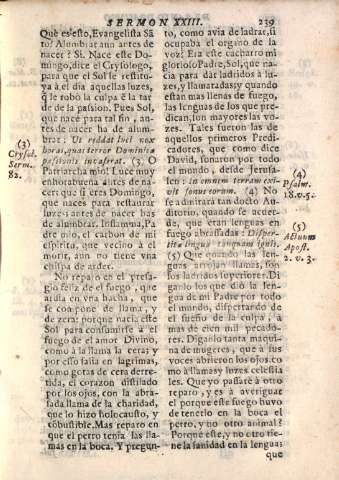 SERMON XXIII. 239
Què es esto, Evangelista Sã-
to? Alumbrar aun antes de
nacer? Si. Nace este Do-
mingo, dice el Crysologo,
para que el Sol le restitu-
ya à el dia aquellas luzes,
q̃ le robò la culpa ẽ la tar-
de de la passion. Pues Sol,
que nace para tal fin, an-
tes de nacer ha de alum-
brar: Ut reddat luci nox
horas, quas terror Dominicæ
passionis invaserat. (3) O
Patriarcha mio! Luce muy
enhorabuena antes de na-
cer; que si eres Domingo,
que naces para restaurar
luzes antes de nacer has
de alumbrar. Inflama, Pa-
dre mio, el carbon de mi
espiritu, que vecino à el
morir, aun no tiene vna
chispa de arder.
No reparo en el presa-
gio feliz de el fuego, que
ardia en vna hacha, que
se compone de llama, y
de cera: porque nacia este
Sol para consumirse à el
fuego de el amor Divino,
como à la llama la cera; y
por esso salia en lagrimas,
como gotas de cera derre-
tida, el corazon distilado
por los ojos, con la abra-
sada llama de la charidad,
que lo hizo holocausto, y
cõbustible. Mas reparo en
que el perro tenia las lla-
mas en la boca. Y pregun-
(3)
Crysol.
Serm.
82.
to, como avia de ladrar, si
ocupaba el organo de la
voz? Era este cachorro mi
glorioso Padre, Sol, que na-
cia para dar ladridos à lu-
zes, y llamaradas: y quando
estàn mas llenas de fuego,
las lenguas de los que pre-
dican, son mayores las vo-
zes. Tales fueron las de
aquellos primeros Predi-
cadores, que como dice
David, sonaron por todo
el mundo, desde Jerusa-
len: in omnem terram exi-
vit sonus eorum. (4) No
se admirarà tan docto Au-
ditorio, quando se acuer-
de, que eran lenguas en
fuego abrassadas: Disper-
titæ linguæ tanquam ignis.
(5) Que quando las len-
guas arrojan llamas, son
los ladridos superiores. Di-
ganlo los que diò la len-
gua de mi Padre por todo
el mundo, dispertando de
el sueño de la culpa, à
mas de cien mil pecado-
res. Diganlo tanta maqui-
na de mugeres, que à sus
voces abrieron los ojos, co-
mo à llamas y luzes celestia
les. Que yo passarè à otro
reparo, y es à averiguar
el porque este fuego huvo
de tenerlo en la boca el
perro, y no otro animal?
Porque este, y no otro tie-
ne la sanidad en la lengua;
que
(4)
Psalm.
18. v. 5.
(5)
Actuum
Apost.
2. v. 3.